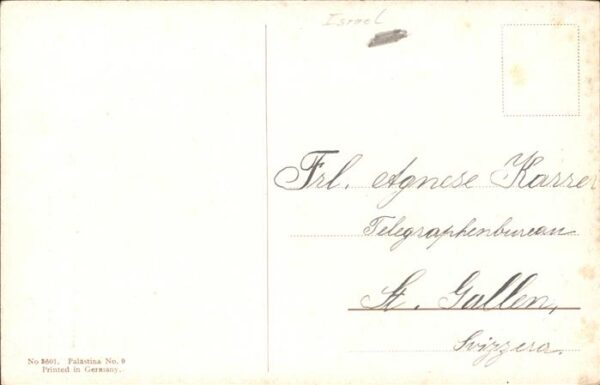 Israel
Frl. Agnese Karrer
Telegraphenbureau
St. Gallen,
Svizzera.
No 8601. Palästina No. 9
Printed in Germany.